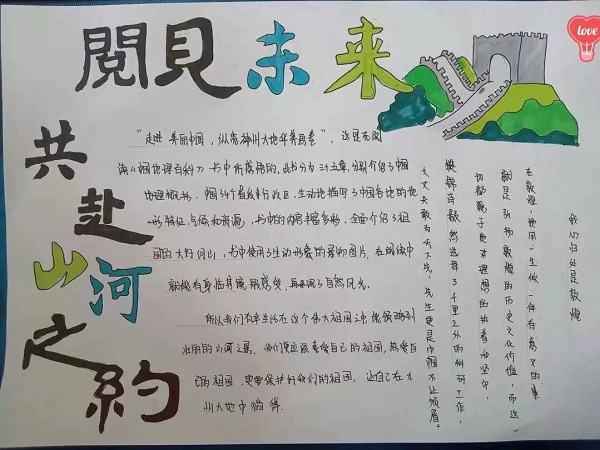 閱見未来
共赴山河之約
"走进美丽中国,纵赏神州大地华美画卷",这是
读《中国地理百科》书中所感悟的,此书分为三十五章,分别介绍了中国
地理概况,中国34个省级行政区,生动地描写了中国各地的地
形特征,气候和资源,书中的内容丰富多彩,全面介绍了祖
国的大好河山,书中使用了生动形象的景物图片,在阅读中
就能有身临其境般感受,自然风光。
所以我们有幸生活在这个伟大祖国之中,能领略到
壮丽的山河之景,我们更应该喜爱自己的祖国,热爱自
己的祖国,更要保护好我们的祖国,让自己在九
州大地中徜徉.
我心归处是敦煌
在敦煌,她用一生做一件有意义的事
就是弘扬敦煌的历史文化价值,而这一
切都源于她对理想的执着和坚守,
樊锦诗毅然选择了千里之外的科研工作,
大丈夫敢为天下先,先生更是巾帼不让须眉。
love